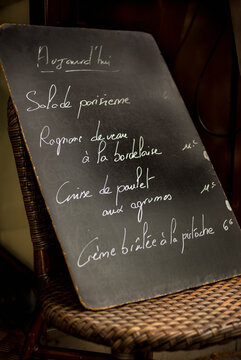 Aujourd'hui
Salade parisienne
Rognons de veau
à la bordelaise 11€
Cuisse de poulet
aux agrumes 11€
Crème brûlée à la pistache 6€